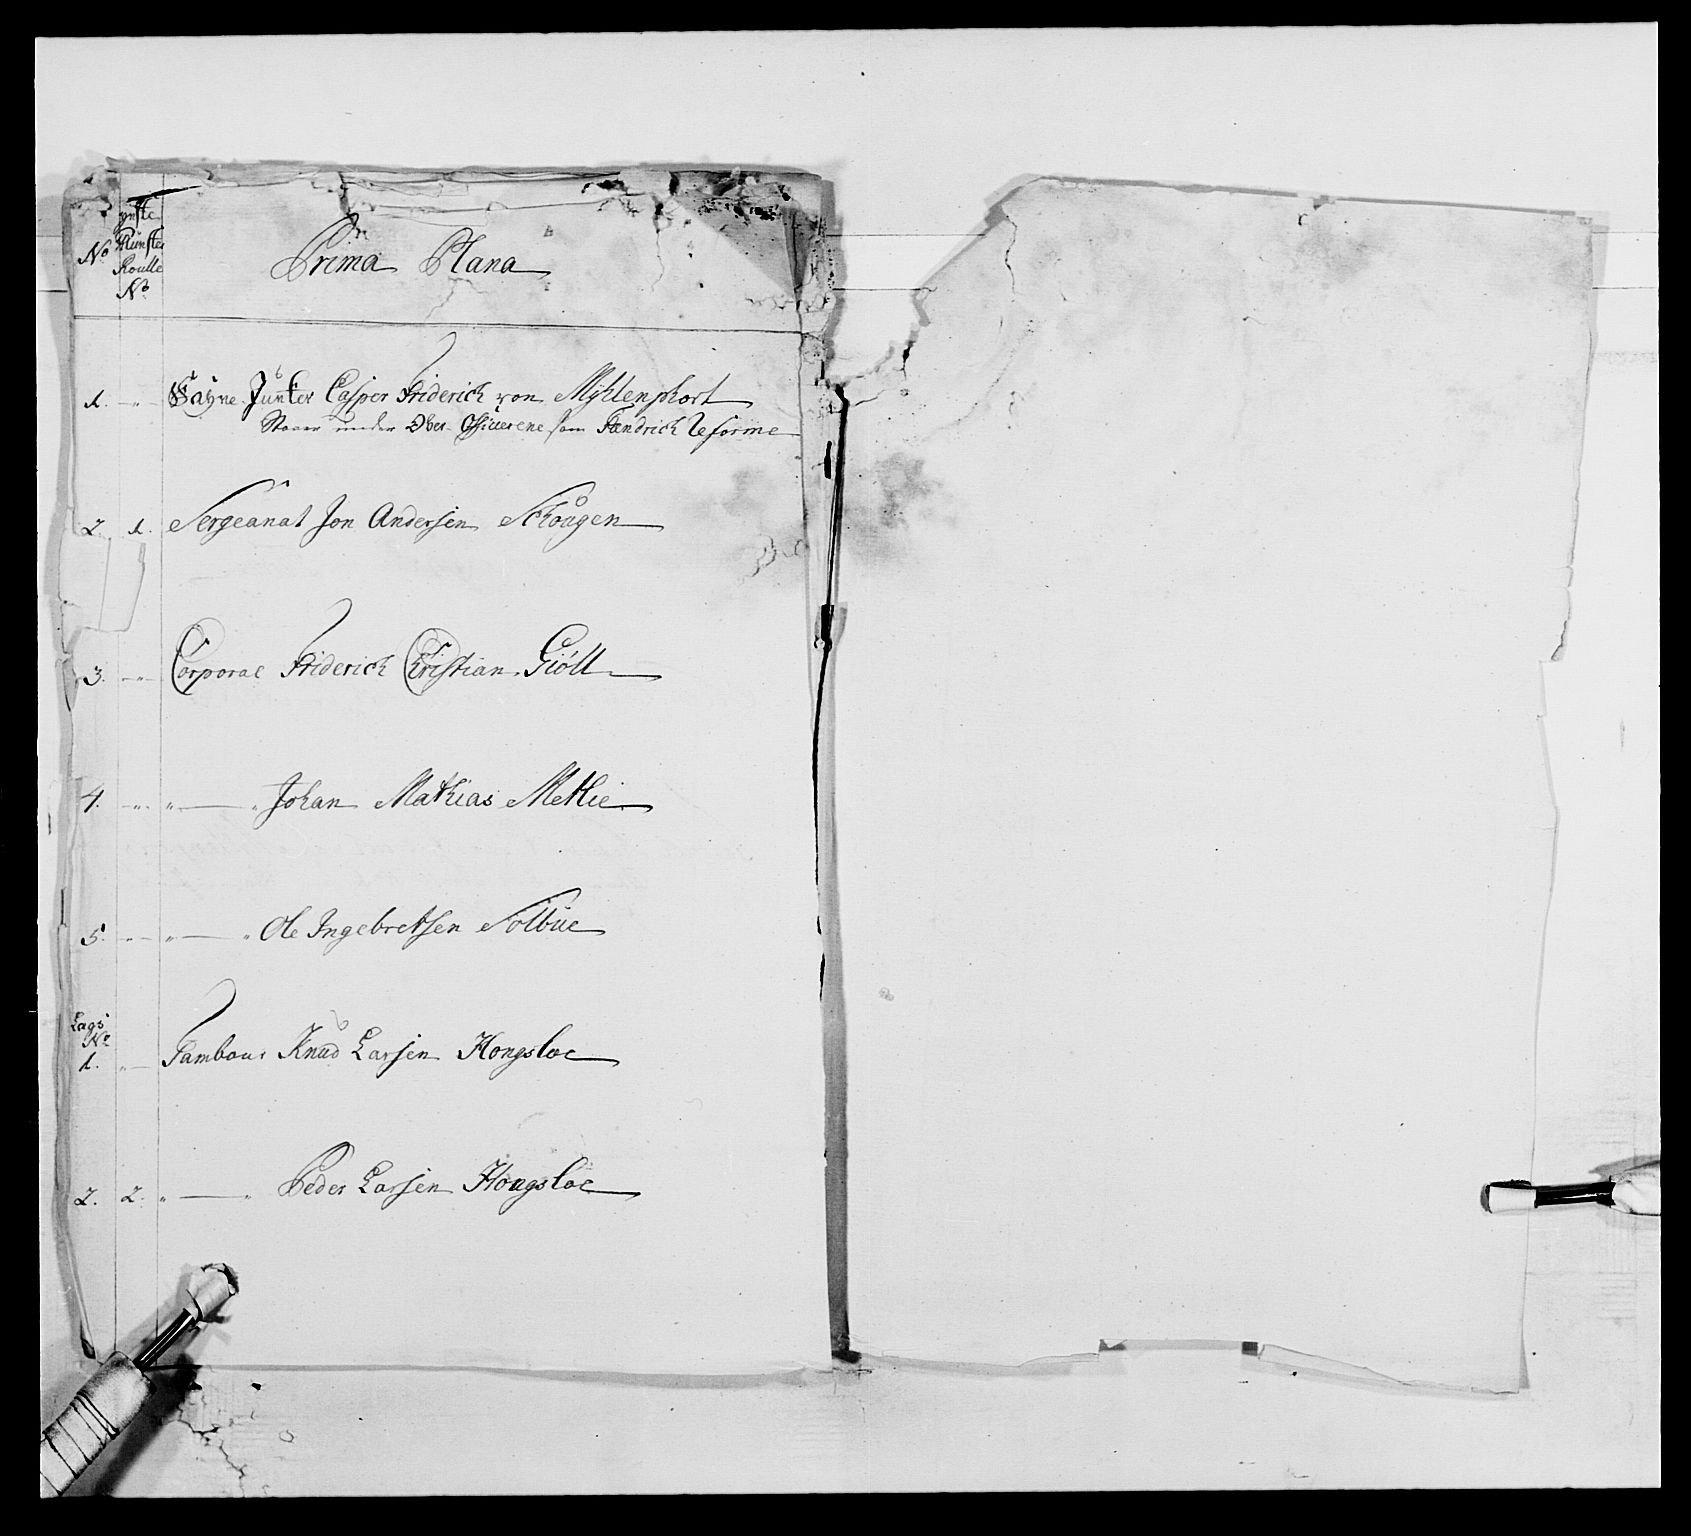 No
Munster
Roulle
No
Prima Plana
1. " Fayne Junker Casper Friderich von Myhlenphort
Staaer under Ober Officierene som Fændrich Reforme
2. 1. Sergeanat Jon Andersen Schougen
3. " Corporal Friderich Christian Giöll
4. " " " Johan Mathias Methie
5. " " " Ole Ingebretsen Solbüe
Lags
No
1. " Tambour Knud Larsen Hongsloe
2. 2. " " Peder Larsen Hongsloe